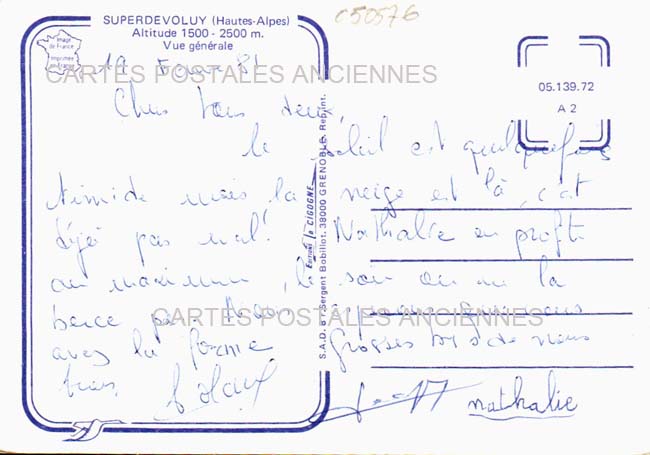 SUPERDEVOLUY (Hautes-Alpes)
Altitude 1500 - 2500 m.
Vue générale
C50576
Image de France
Imprimée en France
19 81
CARTES POSTALES ANCIENNES
05.139.72
A 2
Chers tous deux,
le soleil est quelquefois
timide mais la neige est là, c'est
déjà pas mal! Nathalie en profite
au maximum, le soir on ne la
berce pas.
CARTES POSTALES ANCIENNES
avez la forme Grosses de nous
trois
nathalie
Editions la CIGOGNE
S.A.D. Sergent Bobillot, 38000 GRENOBLE Reprint.